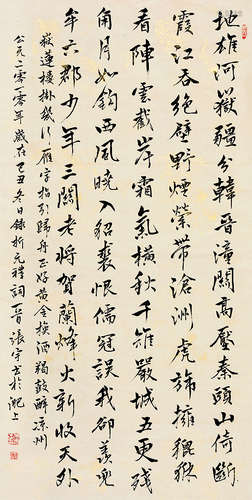 地雄河嶽疆分韓晉潼關高壓秦頭山倚斷
霞江吞絕壁野煙縈帶滄洲虎旆擁貔貅
看陣雲截岸霜氣橫秋千雉嚴城五更殘
角月如鈎西風曉入貂裘恨儒冠誤我卻羨兜
牟六郡少年三關老將賀蘭烽火新收天外
嶽蓮樓掛幾行雁字指引歸舟正好黃金換酒羯鼓醉涼州
公元二零一零年歲在己丑冬日錄折元禮詞一首張宇书於上